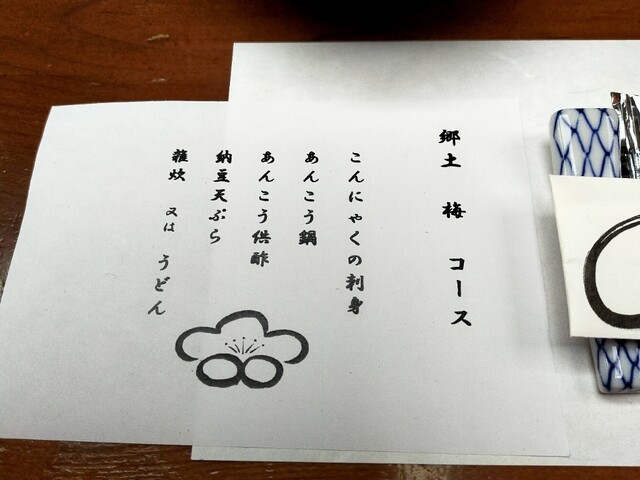 郷土 梅 コース
こんにゃくの刺身
あんこう鍋
あんこう供酢
納豆天ぷら
雑炊 又は うどん